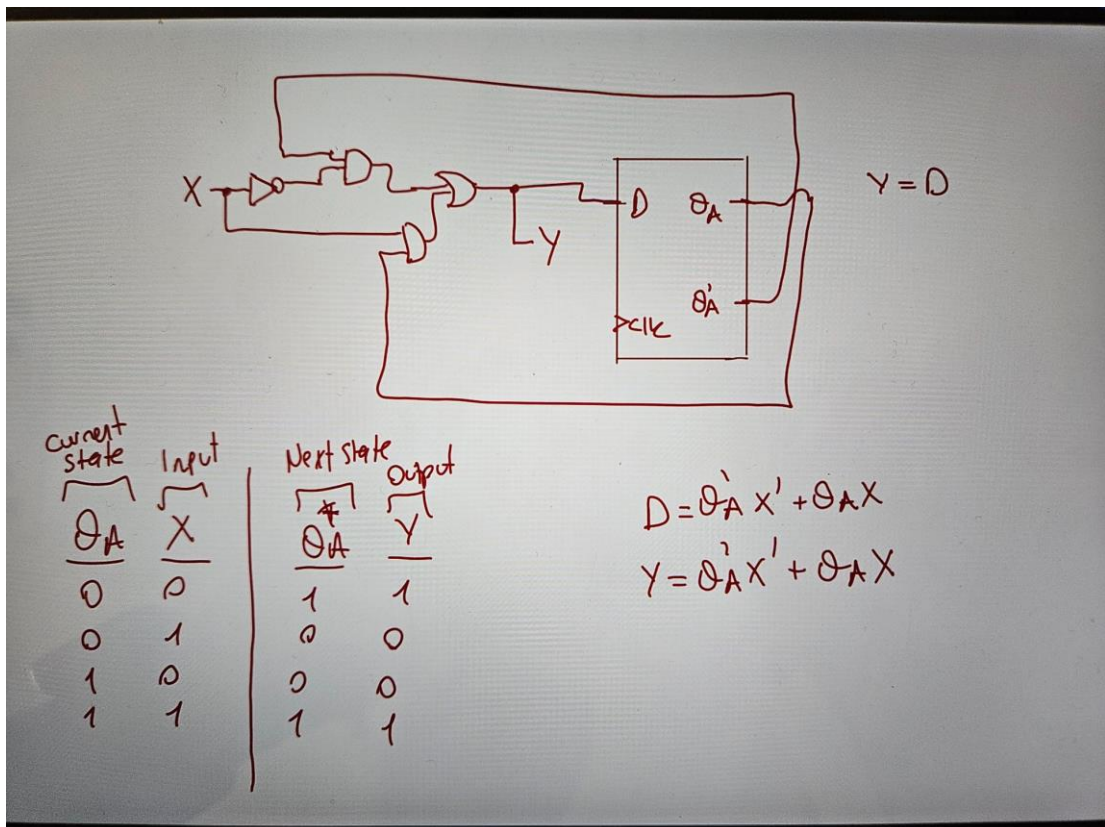 X
Y
D
QA
Q'A
>clk
Y = D
Current state
Input
Next state
Output
QA X QA* Y
0 0 1 1
0 1 0 0
1 0 0 0
1 1 1 1
D = Q'A X' + QA X
Y = Q'A X' + QA X